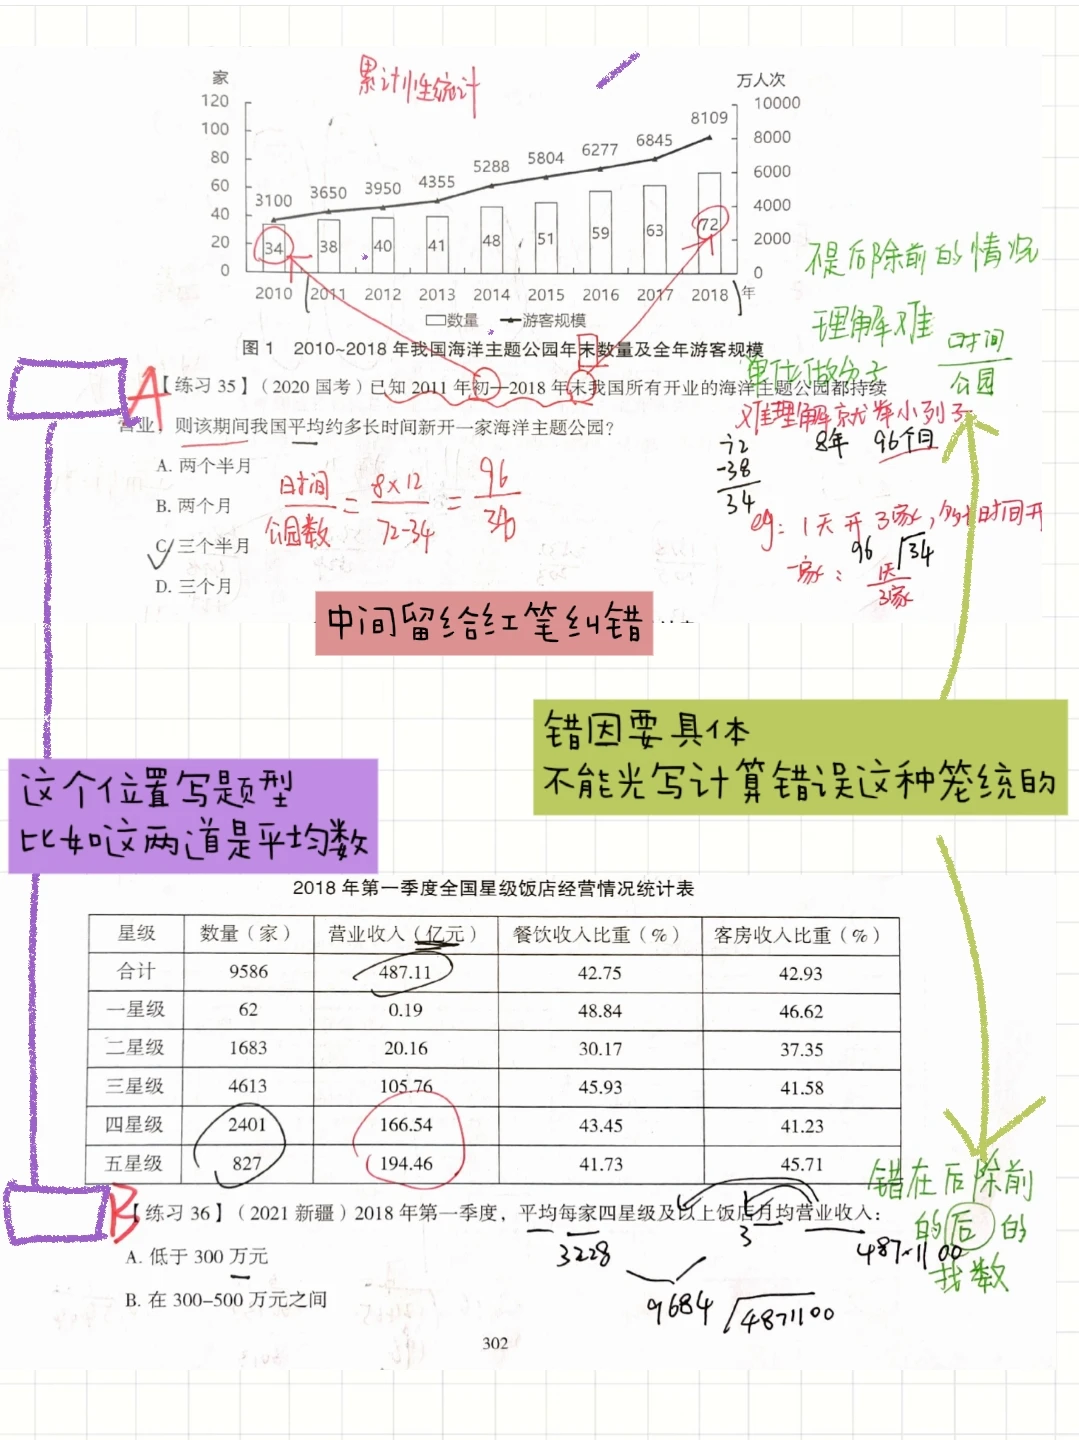 家
累计性统计
万人次
120
100
80
60
40
20
0
10000
8000
6000
4000
2000
0
3100 3650 3950 4355 5288 5804 6277 6845 8109
34 38 40 41 48 51 59 63 72
2010 2011 2012 2013 2014 2015 2016 2017 2018 年
数量 游客规模
图 1 2010~2018 年我国海洋主题公园年末数量及全年游客规模
不是后除前的情况
理解难
单位做分子
时间
公园
A
【练习 35】(2020 国考) 已知 2011 年初—2018 年末我国所有开业的海洋主题公园都持续
营业,则该期间我国平均约多长时间新开一家海洋主题公园?
难理解就举小列子
A. 两个半月
B. 两个月
C. 三个半月
D. 三个月
时间
公园数
= 8×12
72-34
= 96
34
72
-38
34
8年 96个月
eg: 1天开3家,多长时间开
一家:
1天
3家
96 34
中间留给红笔纠错
错因要具体
不能光写计算错误这种笼统的
这个位置写题型
比如这两道是平均数
2018 年第一季度全国星级饭店经营情况统计表
星级 数量(家) 营业收入(亿元) 餐饮收入比重(%) 客房收入比重(%)
合计 9586 487.11 42.75 42.93
一星级 62 0.19 48.84 46.62
二星级 1683 20.16 30.17 37.35
三星级 4613 105.76 45.93 41.58
四星级 2401 166.54 43.45 41.23
五星级 827 194.46 41.73 45.71
B
【练习 36】(2021 新疆) 2018 年第一季度,平均每家四星级及以上饭店月均营业收入:
错在后除前
的后的
找数
3228
3
487.1100
A. 低于 300 万元
B. 在 300–500 万元之间
9684 4871100
302